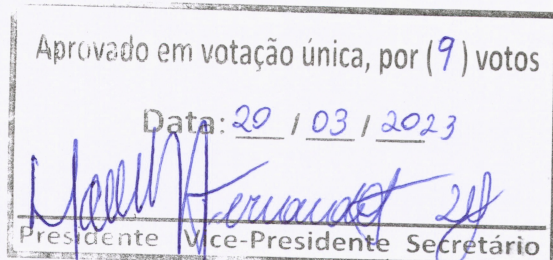 Aprovado em votação única, por (9) votos
Data: 20 / 03 / 2023
Fernandes
Presidente Vice-Presidente Secretário